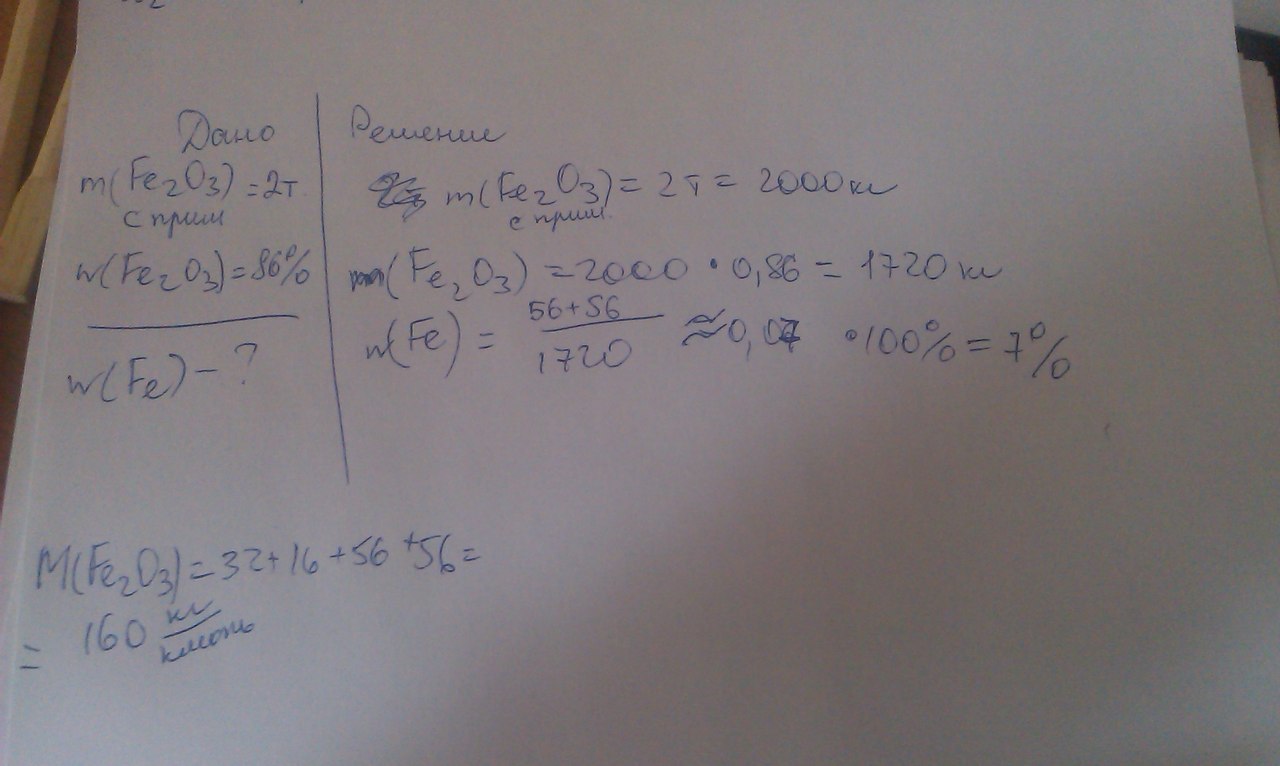 Дано
m(Fe2O3) = 2т
с прим
w(Fe2O3) = 86%
w(Fe) - ?
Решение
m(Fe2O3) = 2т = 2000 кг
с прим.
m(Fe2O3) = 2000 · 0,86 = 1720 кг
w(Fe) = 56+56 / 1720 ≈ 0,07 · 100% = 7%
M(Fe2O3) = 32 + 16 + 56 + 56 =
= 160 кг/кмоль